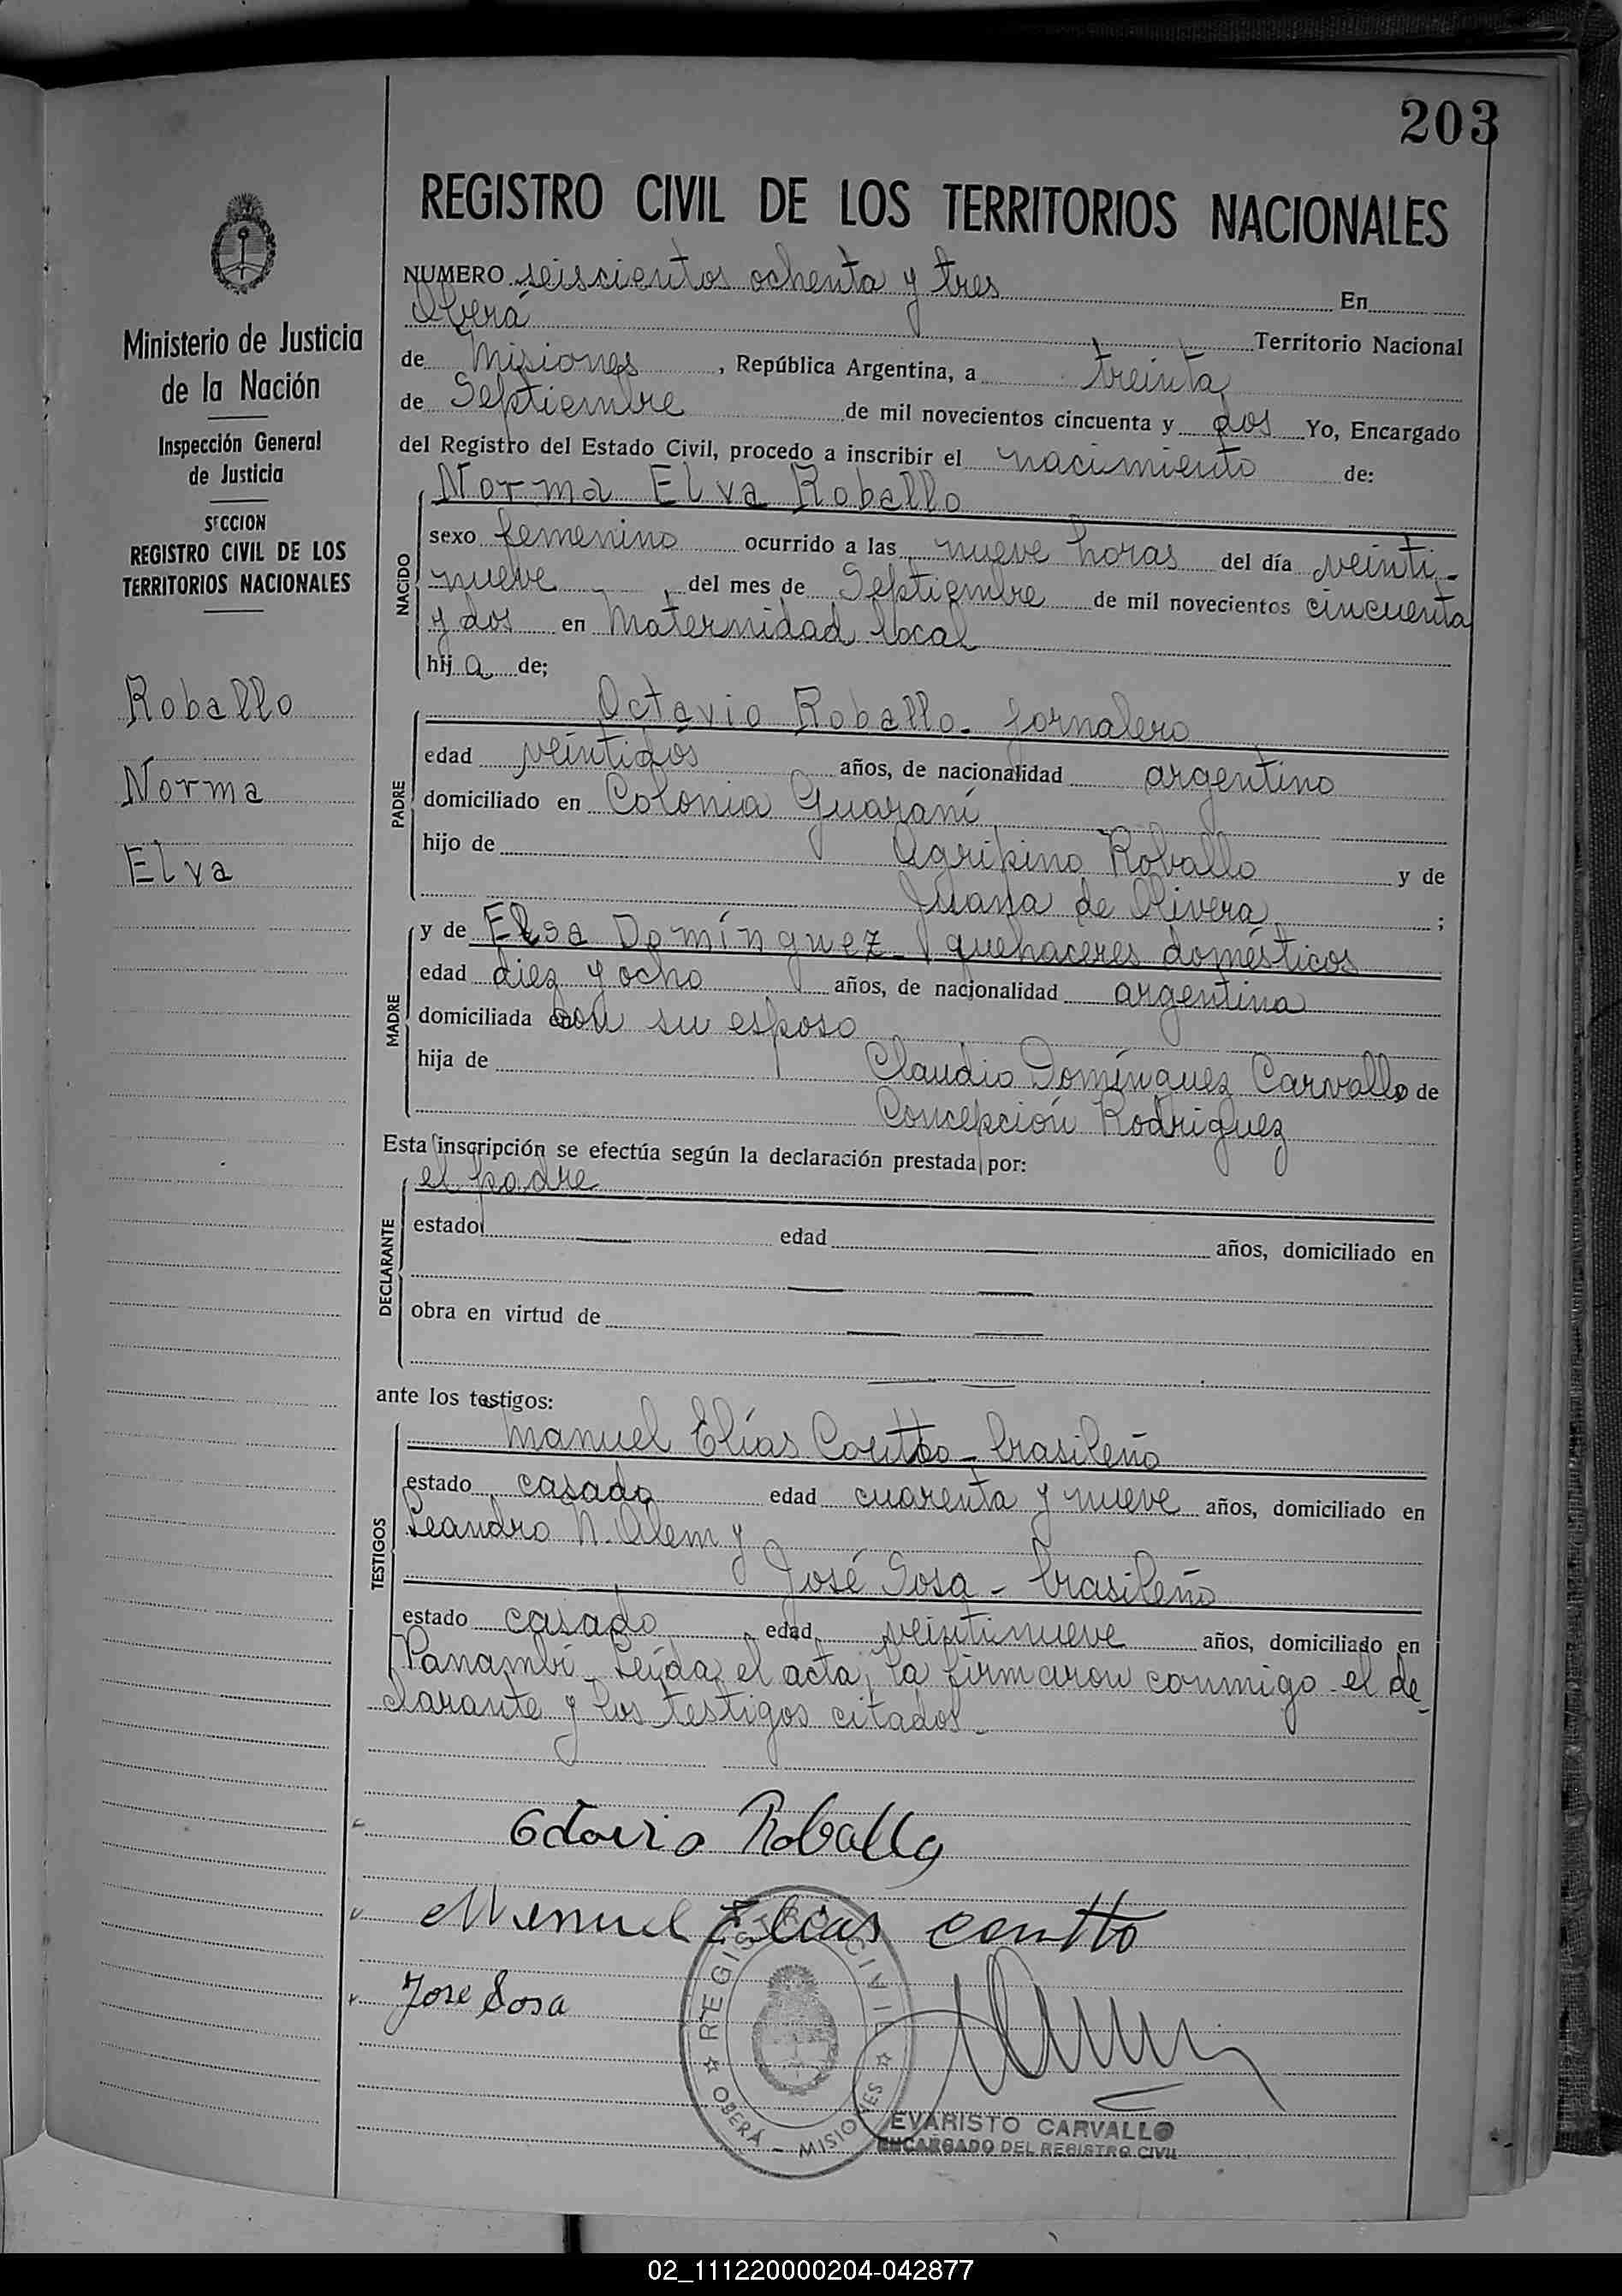 203
REGISTRO CIVIL DE LOS TERRITORIOS NACIONALES
Ministerio de Justicia
de la Nación
Inspección General
de Justicia
SECCION
REGISTRO CIVIL DE LOS
TERRITORIOS NACIONALES
Roballo
Norma
Elva
NUMERO seiscientos ochenta y tres En
Oberá Territorio Nacional
de Misiones, República Argentina, a treinta
de Septiembre de mil novecientos cincuenta y dos Yo, Encargado
del Registro del Estado Civil, procedo a inscribir el nacimiento de:
NACIDO
Norma Elva Roballo
sexo femenino ocurrido a las nueve horas del día veinti-
nueve, del mes de Septiembre de mil novecientos cincuenta
y dos en Maternidad local
hija de;
PADRE
Octavio Roballo - jornalero
edad veintidós años, de nacionalidad argentino
domiciliado en Colonia Guaraní
hijo de Agripino Roballo y de
Juana de Olivera ;
MADRE
y de Elsa Domínguez - quehaceres domésticos
edad diez y ocho años, de nacionalidad argentina
domiciliada con su esposo
hija de Claudio Domínguez Carvallo de
Concepción Rodriguez
Esta inscripción se efectúa según la declaración prestada por:
DECLARANTE
el padre
estado edad años, domiciliado en
obra en virtud de
ante los testigos:
TESTIGOS
Manuel Elías Coutto - brasileño
estado casado edad cuarenta y nueve años, domiciliado en
Leandro N. Alem y
José Sosa - brasileño
estado casado, edad veintinueve años, domiciliado en
Panambí - Leída el acta, la firmaron conmigo el de-
clarante y los testigos citados -
Octavio Roballo
Manuel Elias Coutto
Jose Sosa
REGISTRO CIVIL
OBERÁ - MISIONES
EVARISTO CARVALLO
ENCARGADO DEL REGISTRO CIVIL
02_111220000204-042877